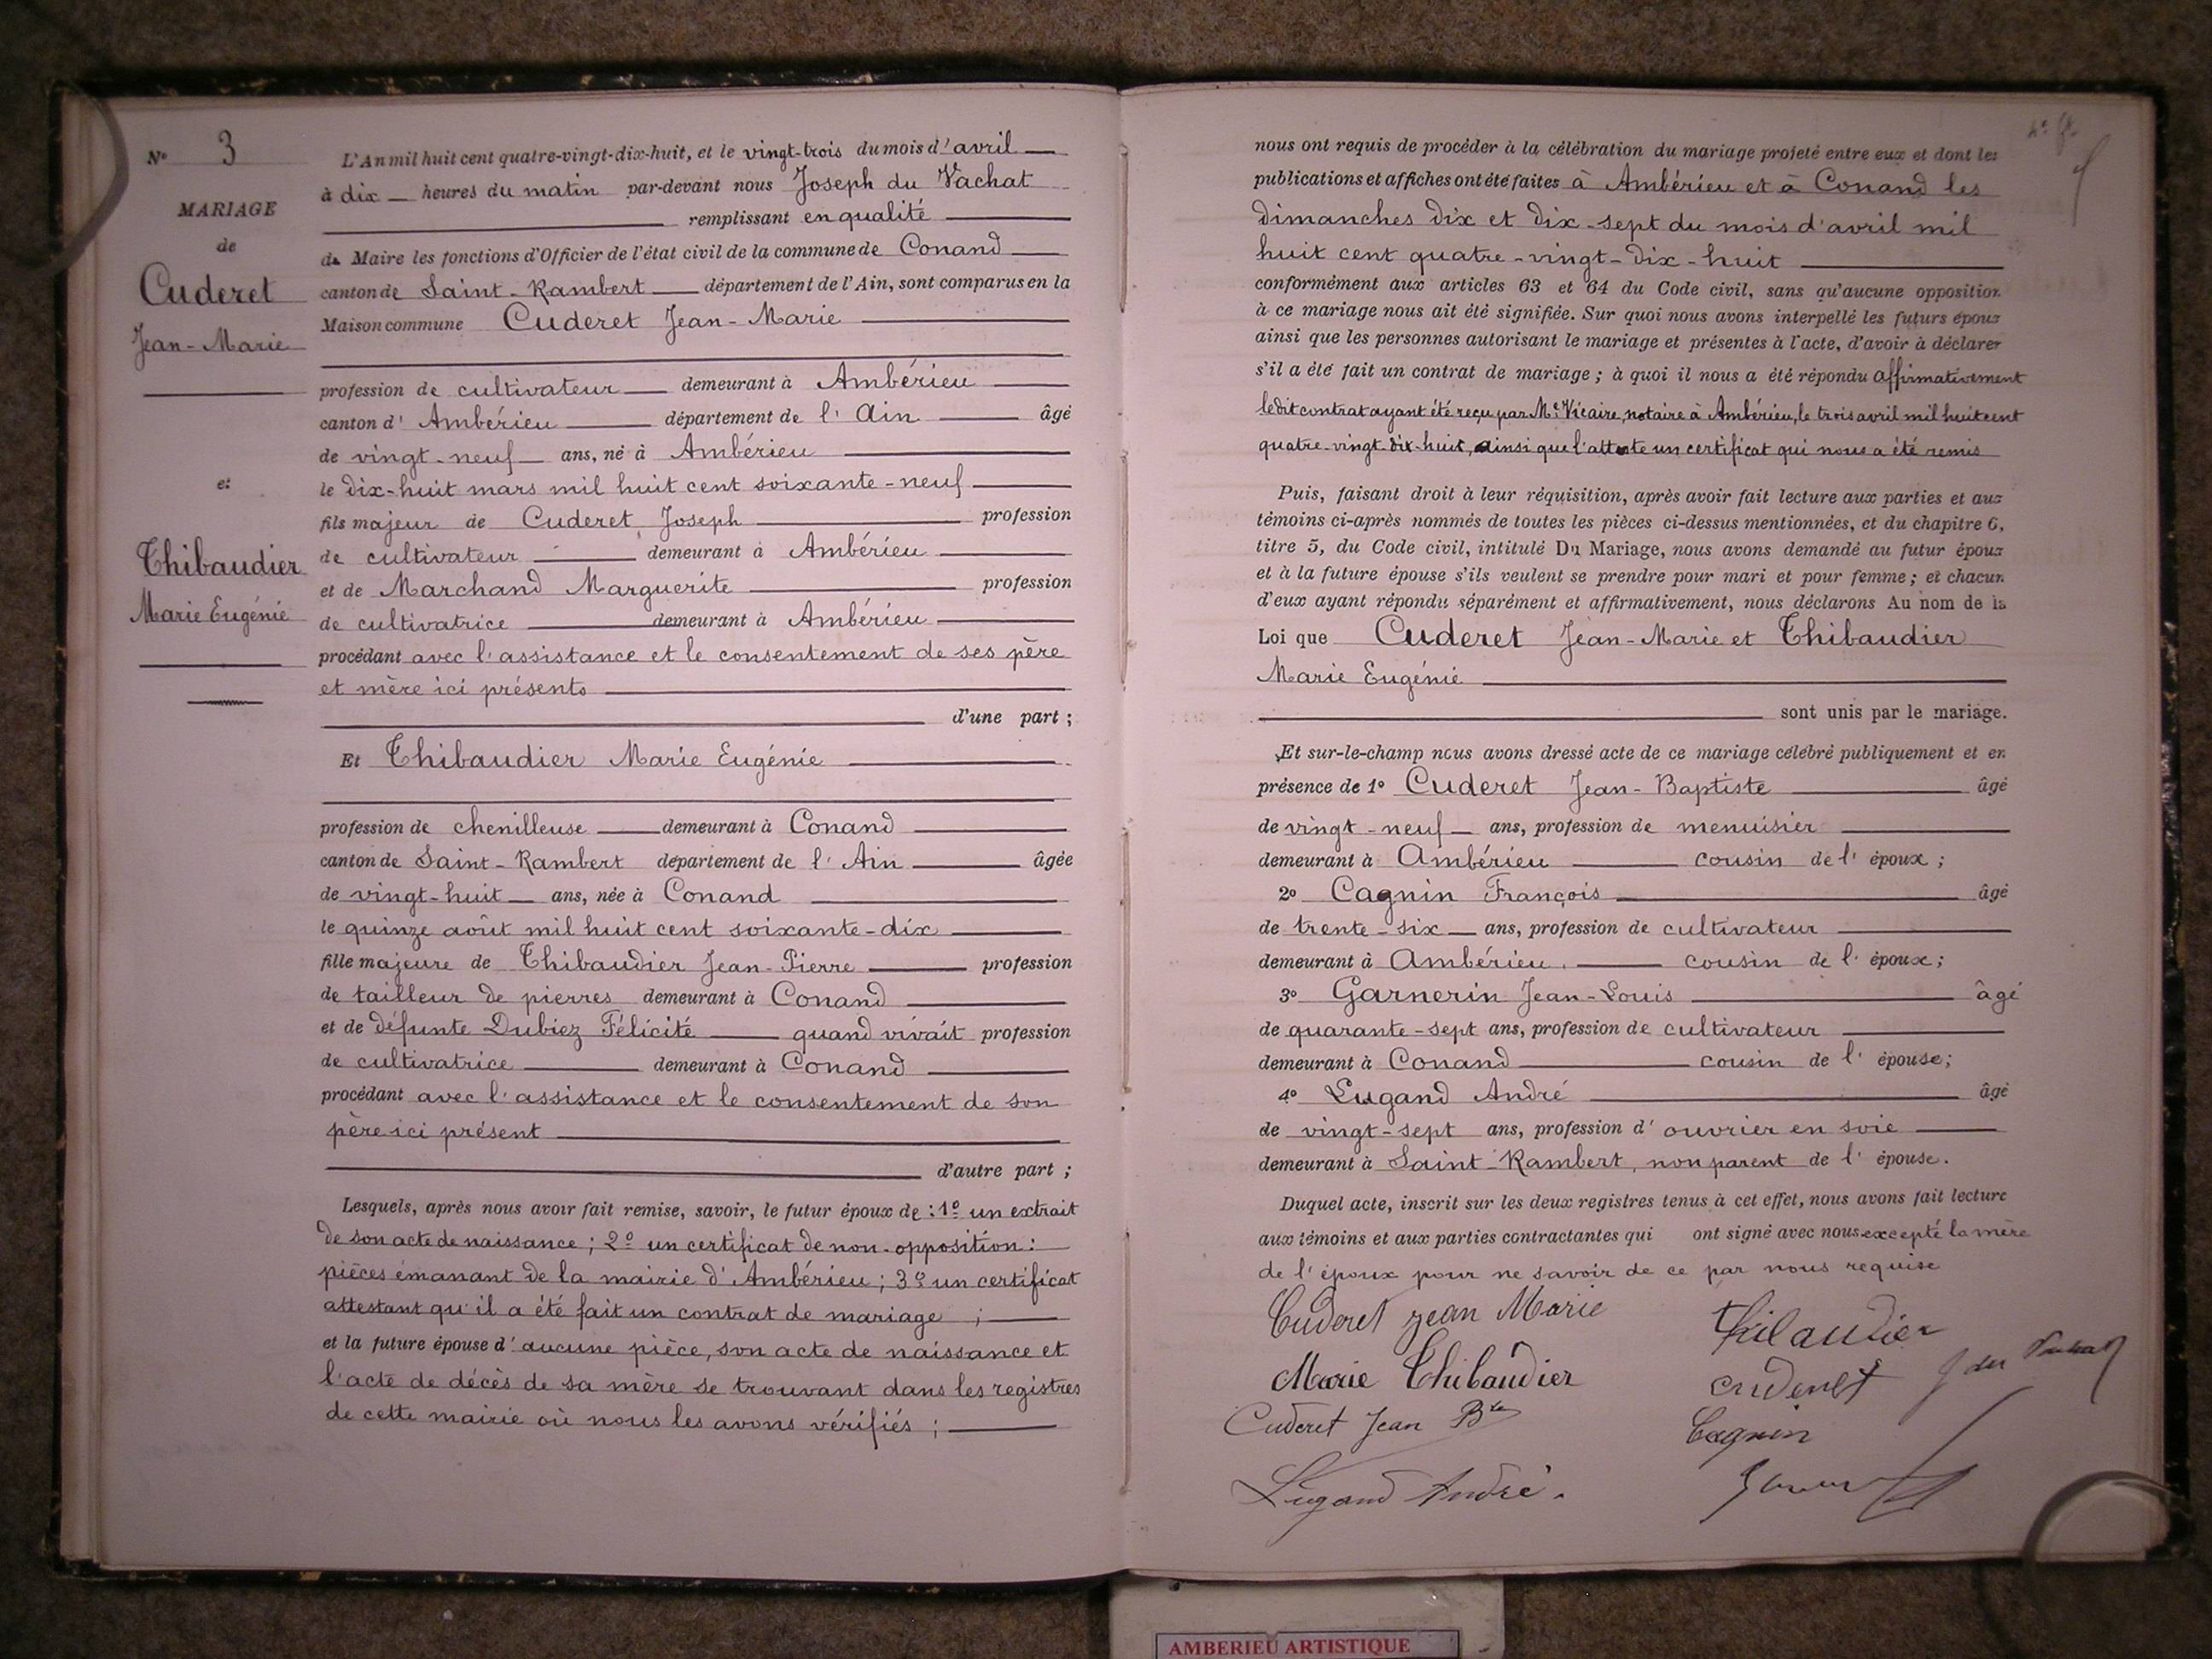 N° 3
MARIAGE
de
Cuderet
Jean-Marie
et
Thibaudier
Marie Eugénie
L'An mil huit cent quatre-vingt-dix-huit, et le vingt-trois du mois d'avril
à dix heures du matin par-devant nous Joseph du Vachat
remplissant en qualité
de Maire les fonctions d'Officier de l'état civil de la commune de Conand
canton de Saint-Rambert département de l'Ain, sont comparus en la
Maison commune Cuderet Jean-Marie
profession de cultivateur demeurant à Ambérieu
canton d'Ambérieu département de l'Ain âgé
de vingt-neuf ans, né à Ambérieu
le dix-huit mars mil huit cent soixante-neuf
fils majeur de Cuderet Joseph profession
de cultivateur demeurant à Ambérieu
et de Marchand Marguerite profession
de cultivatrice demeurant à Ambérieu
procédant avec l'assistance et le consentement de ses père
et mère ici présents
d'une part ;
Et Thibaudier Marie Eugénie
profession de chenilleuse demeurant à Conand
canton de Saint-Rambert département de l'Ain âgée
de vingt-huit ans, née à Conand
le quinze août mil huit cent soixante-dix
fille majeure de Thibaudier Jean-Pierre profession
de tailleur de pierres demeurant à Conand
et de défunte Dubiez Félicité quand vivait profession
de cultivatrice demeurant à Conand
procédant avec l'assistance et le consentement de son
père ici présent
d'autre part ;
Lesquels, après nous avoir fait remise, savoir, le futur époux de : 1° un extrait
de son acte de naissance ; 2° un certificat de non-opposition :
pièces émanant de la mairie d'Ambérieu ; 3° un certificat
attestant qu'il a été fait un contrat de mariage ;
et la future épouse d'aucune pièce, son acte de naissance et
l'acte de décès de sa mère se trouvant dans les registres
de cette mairie où nous les avons vérifiés ;
nous ont requis de procéder à la célébration du mariage projeté entre eux et dont les
publications et affiches ont été faites à Ambérieu et à Conand les
dimanches dix et dix-sept du mois d'avril mil
huit cent quatre-vingt-dix-huit
conformément aux articles 63 et 64 du Code civil, sans qu'aucune opposition
à ce mariage nous ait été signifiée. Sur quoi nous avons interpellé les futurs époux
ainsi que les personnes autorisant le mariage et présentes à l'acte, d'avoir à déclarer
s'il a été fait un contrat de mariage ; à quoi il nous a été répondu affirmativement
ledit contrat ayant été reçu par Me Vicaire, notaire à Ambérieu, le trois avril mil huit cent
quatre-vingt-dix-huit, ainsi que l'atteste un certificat qui nous a été remis
Puis, faisant droit à leur réquisition, après avoir fait lecture aux parties et aux
témoins ci-après nommés de toutes les pièces ci-dessus mentionnées, et du chapitre 6,
titre 5, du Code civil, intitulé Du Mariage, nous avons demandé au futur époux
et à la future épouse s'ils veulent se prendre pour mari et pour femme ; et chacun
d'eux ayant répondu séparément et affirmativement, nous déclarons Au nom de la
Loi que Cuderet Jean-Marie et Thibaudier
Marie Eugénie
sont unis par le mariage.
Et sur-le-champ nous avons dressé acte de ce mariage célébré publiquement et en
présence de 1° Cuderet Jean-Baptiste âgé
de vingt-neuf ans, profession de menuisier
demeurant à Ambérieu cousin de l'époux ;
2° Cagnin François âgé
de trente-six ans, profession de cultivateur
demeurant à Ambérieu. cousin de l'époux ;
3° Garnerin Jean-Louis âgé
de quarante-sept ans, profession de cultivateur
demeurant à Conand cousin de l'épouse ;
4° Lugand André âgé
de vingt-sept ans, profession d'ouvrier en soie
demeurant à Saint-Rambert, non parent de l'épouse.
Duquel acte, inscrit sur les deux registres tenus à cet effet, nous avons fait lecture
aux témoins et aux parties contractantes qui ont signé avec nous excepté la mère
de l'époux pour ne savoir de ce par nous requise
Cuderet jean Marie
Thibaudier
Marie Thibaudier
Cuderet
J du Vachat
Cuderet Jean Bte
Cagnin
Lugand André.
AMBERIEU ARTISTIQUE